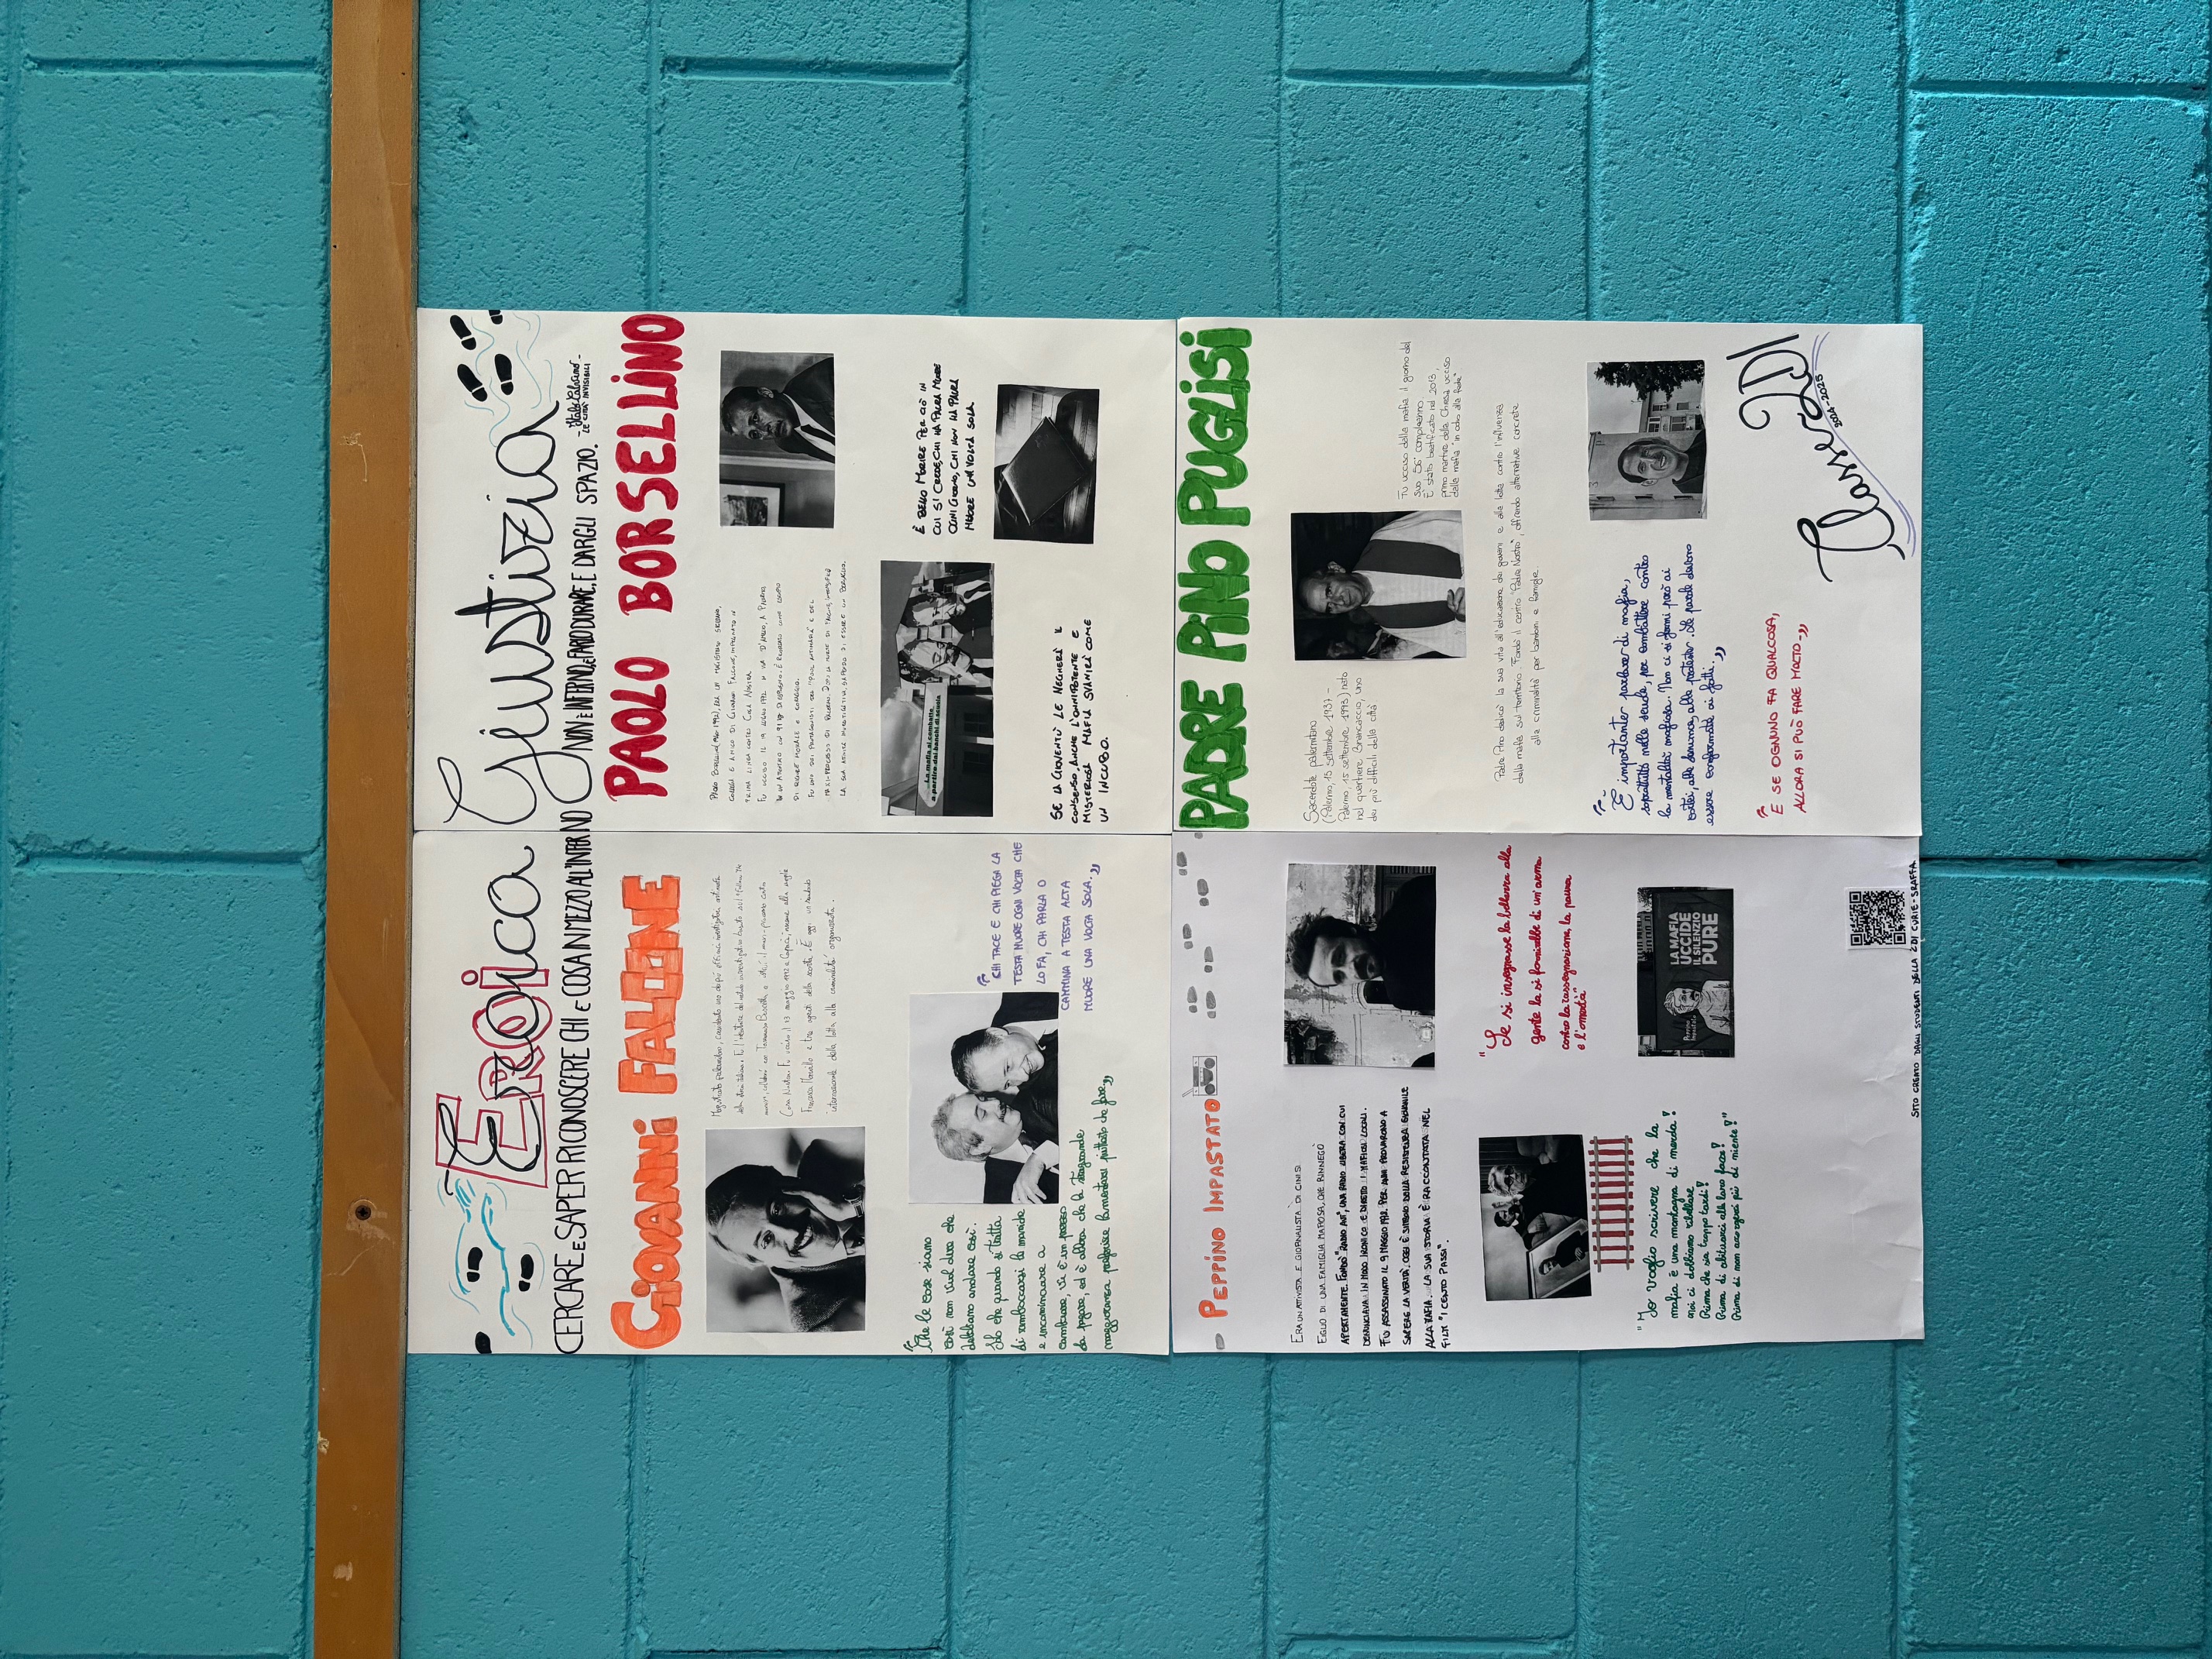 Eroica Giustizia
CERCARE E SAPER RICONOSCERE CHI E COSA IN MEZZO ALL'INFERNO NON È INFERNO, E FARLO DURARE, E DARGLI SPAZIO. - Italo Calvino -
LE CITTÀ INVISIBILI
GIOVANNI FALCONE
Magistrato palermitano, considerato uno degli eroici investigatori antimafia
della storia italiana. Fu l'ideatore del metodo investigativo basato sul "Follow the
money", collaborò con Tommaso Buscetta e istruì il maxi-processo contro
Cosa Nostra. Fu ucciso il 23 maggio 1992 a Capaci, insieme alla moglie
Francesca Morvillo e tre agenti della scorta. È oggi un simbolo
internazionale della lotta alla criminalità organizzata.
"Che le cose siano
così non vuol dire che
debbano andare così.
Solo che quando si tratta
di rimboccarsi le maniche
e incominciare a
cambiare, vi è un prezzo
da pagare, ed è allora che la stragrande
maggioranza preferisce lamentarsi piuttosto che fare."
"CHI TACE E CHI PIEGA LA
TESTA MUORE OGNI VOLTA CHE
LO FA, CHI PARLA O
CAMMINA A TESTA ALTA
MUORE UNA VOLTA SOLA."
PAOLO BORSELLINO
PAOLO BORSELLINO (1940-1992), ERA UN MAGISTRATO SICILIANO,
COLLEGA E AMICO DI GIOVANNI FALCONE, IMPEGNATO IN
PRIMA LINEA CONTRO COSA NOSTRA.
FU UCCISO IL 19 LUGLIO 1992 IN VIA D'AMELIO, A PALERMO
IN UN ATTENTATO CON 91 KG DI ESPLOSIVO. È RICORDATO COME ESEMPIO
DI RIGORE MORALE E CORAGGIO.
FU UNO DEI PROTAGONISTI DEL "POOL ANTIMAFIA" E DEL
MAXI-PROCESSO DI PALERMO. DOPO LA MORTE DI FALCONE, INTENSIFICÒ
LA SUA ATTIVITÀ INVESTIGATIVA, SAPENDO DI ESSERE UN BERSAGLIO.
...La mafia si combatte
a partire dai banchi di scuola
È BELLO MORIRE PER CIÒ IN
CUI SI CREDE, CHI HA PAURA MUORE
OGNI GIORNO, CHI NON HA PAURA
MUORE UNA VOLTA SOLA
SE LA GIOVENTÙ LE NEGHERÀ IL
CONSENSO, ANCHE L'ONNIPOTENTE E
MISTERIOSA MAFIA SVANIRÀ COME
UN INCUBO.
PEPPINO IMPASTATO
ERA UN ATTIVISTA E GIORNALISTA DI CINISI
FIGLIO DI UNA FAMIGLIA MAFIOSA, CHE RINNEGÒ
APERTAMENTE. FONDÒ "RADIO AUT", UNA RADIO LIBERA CON CUI
DENUNCIAVA IN MODO IRONICO E DIRETTO I MAFIOSI LOCALI.
FU ASSASSINATO IL 9 MAGGIO 1978. PER ANNI PROVARONO A
SAPERE LA VERITÀ. OGGI È SIMBOLO DELLA RESISTENZA GIOVANILE
ALLA MAFIA. LA SUA STORIA È RACCONTATA NEL
FILM "I CENTO PASSI".
"Se si insegnasse la bellezza alla
gente la si fornirebbe di un'arma
contro la rassegnazione, la paura
e l'omertà"
"Io voglio scrivere che la
mafia è una montagna di merda!
noi ci dobbiamo ribellare
Prima che sia troppo tardi!
Prima di abituarci alle loro facce!
Prima di non accorgerci più di niente!"
Peppino
Impastato
LA MAFIA
UCCIDE
IL SILENZIO
PURE
SITO CREATO DAGLI STUDENTI DELLA 2DI CURIE-SRAFFA
PADRE PINO PUGLISI
Sacerdote palermitano
(Palermo, 15 settembre 1937 -
Palermo, 15 settembre 1993) nato
nel quartiere Brancaccio, uno
dei più difficili della città
Fu ucciso dalla mafia il giorno del
suo 56° compleanno.
È stato beatificato nel 2013,
primo martire della Chiesa ucciso
dalla mafia "in odio alla fede"
Padre Pino dedicò la sua vita all'educazione dei giovani e alla lotta contro l'influenza
della mafia sul territorio. Fondò il centro "Padre Nostro", offrendo alternative concrete
alla criminalità per bambini e famiglie.
"È importante parlare di mafia,
soprattutto nelle scuole, per combattere contro
la mentalità mafiosa. Non ci si fermi però ai
cortei, alle denunce, alle proteste. Le parole devono
essere confermate ai fatti."
"E SE OGNUNO FA QUALCOSA,
ALLORA SI PUÒ FARE MOLTO."
Classe 2DI
2024-2025